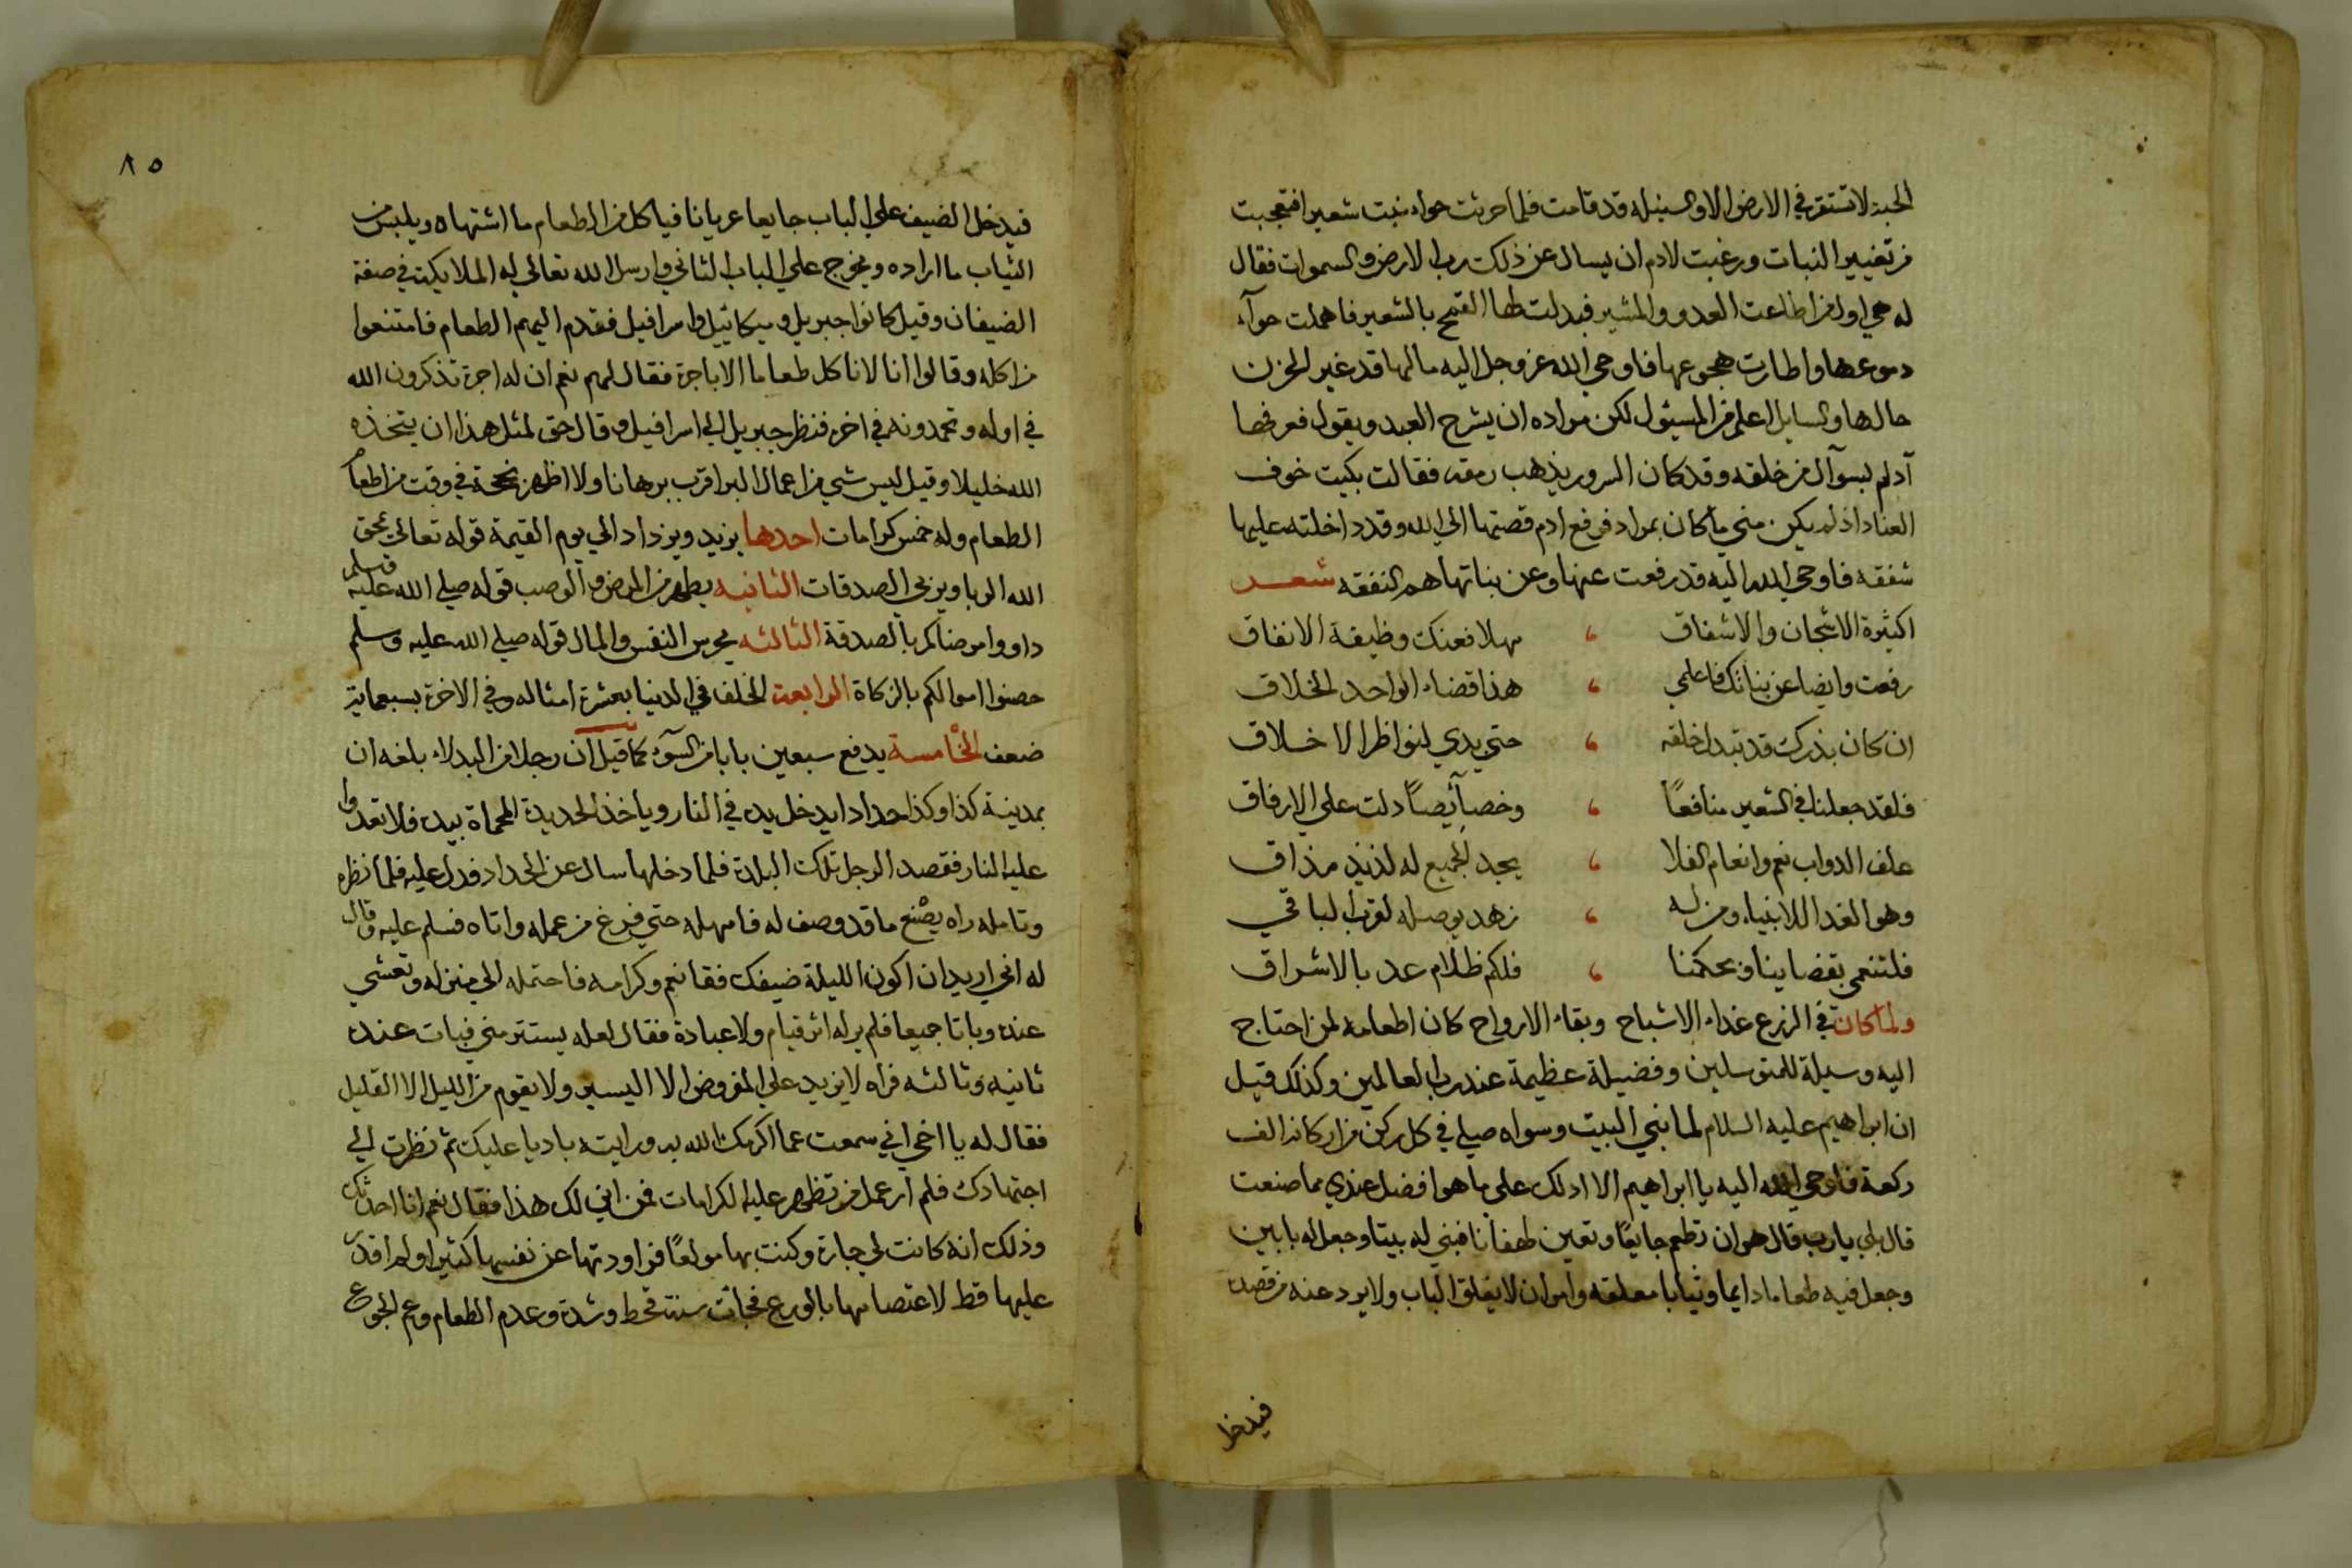 الحبة لا تستقر في الارض الا والسنبله قد قامت فلما حرثت حواء نبت شعيرا فتعجبت
من تغيير النبات ورغبت لادم ان يسال عن ذلك رب الارض والسموات فقال
له هي اول من اطاعت العدو والمشير فبدلت لها القمح بالشعير فاهملت حوآء
دموعها واطارت هجوعها فاوحي الله عز وجل اليه مالها قد غير الحزن
حالها والسايل اعلم من المسئول لكن مراده ان يشرح العبد ويقول فعرفها
آدم بسوآل من خلقه وقد كان السرور يذهب رمقه فقالت بكيت خوف
العناد اذ لم يكن مني ما كان بمراد فرفع ادم قصتها الي الله وقد داخلته عليها
شفقه فاوحي الله اليه قد رفعت عنها وعن بناتها هم النفقه شعر
اكثيرة الاشجان والاشفاق ، مهلا فعنك وظيفة الانفاق
رفعت وايضا عن بناتك فاعلمي ، هذا قضاء الواحد الخلاق
ان كان بذرك قد تبدل خلقه ، حتي بدي لنواظر الاخلاق
فلقد جعلنا في الشعير منافعًا ، وخصآئصًا دلت علي الارفاق
علف الدواب نعم وانعام الفلا ، يجد الجميع له لذيذ مذاق
وهو الغدا للانبياء ومن له ، زهد يوصله لقرب الباقي
فلتنعمي بقضاينا وبحكمنا ، فلكم ظلام عد بالاشراق
ولما كان في الزرع غذاء الاشباح وبقاء الارواح كان اطعامه لمن احتاج
اليه وسيلة للمتوسلين وفضيلة عظيمة عند رب العالمين وكذلك قيل
ان ابراهيم عليه السلام لما بني البيت وسواه صلي في كل ركن من اركانه الف
ركعة فاوحي الله اليه يا ابراهيم الا ادلك علي ما هو افضل عندي مما صنعت
قال بلي يارب قال هو ان تطعم جايعًا وتعين لهفانا فبني له بيتا وجعل له بابين
وجعل فيه طعاما دايما وثيابا معلقه وامر ان لا يغلق الباب ولا يرد عنه من قصده
فيدخل
٨٥
فيدخل الضيف علي الباب جايعا عريانا فياكل من الطعام ما اشتهاه ويلبس من
الثياب ما اراده ويخرج علي الباب الثاني وارسل الله تعالي له الملايكة في صفة
الضيفان وقيل كانوا جبريل وميكائيل واسرافيل فقدم اليهم الطعام فامتنعوا
من اكله وقالوا انا لا ناكل طعاما الا باجرة فقال لهم نعم ان له اجرة تذكرون الله
في اوله وتحمدونه في اخره فنظر جبريل الي اسرافيل وقال حق لمثل هذا ان يتخذه
الله خليلا وقيل ليس شي من اعمال البر اقرب برهانا ولا اظهر نجحة في وقت من اطعام
الطعام وله خمس كرامات احدها يزيد ويزداد الي يوم القيمة قوله تعالي يمحق
الله الربا ويربي الصدقات الثانيه يطهر من المرض والوصب قوله صلي الله عليه وسلم
داووا مرضاكم بالصدقة الثالثه يحرس النفس والمال قوله صلي الله عليه وسلم
حصنوا اموالكم بالزكاة الرابعة الخلف في الدنيا بعشرة امثاله وفي الاخرة بسبعماية
ضعف الخامسة يدفع سبعين بابا من السوء كما قيل ان رجلا من البدلاء بلغه ان
بمدينة كذا وكذا حدادا يدخل يده في النار وياخذ الحديدة المحماة بيده فلا تعدوا
عليه النار فقصد الرجل تلك البلدة فلما دخلها سال عن الحداد فدل عليه فلما نظره
وتامله راه يصنع ما قد وصف له فامهله حتي فرغ من عمله واتاه فسلم عليه وقال
له اني اريد ان اكون الليلة ضيفك فقا نعم وكرامه فاحتمله الي منزله وتعشي
عنده وباتا جميعا فلم ير له اثر قيام ولا عبادة فقال لعله يستتر مني فبات عنده
ثانيه وثالثه فراه لا يزيد علي المفروض الا اليسير ولا يقوم من الليل الا القليل
فقال له يا اخي اني سمعت عما اكرمك الله به ورايته باديا عليك ثم نظرت الي
اجتهادك فلم ار عمل من تظهر عليه الكرامات فمن اني لك هذا فقال نعم انا احدثك
وذلك انه كانت لي جارة وكنت بها مولعًا فراودتها عن نفسها كثيرا ولم اقدر
عليها قط لاعتصامها بالورع فجائت سنت قحط وشده وعدم الطعام وعم الجوع